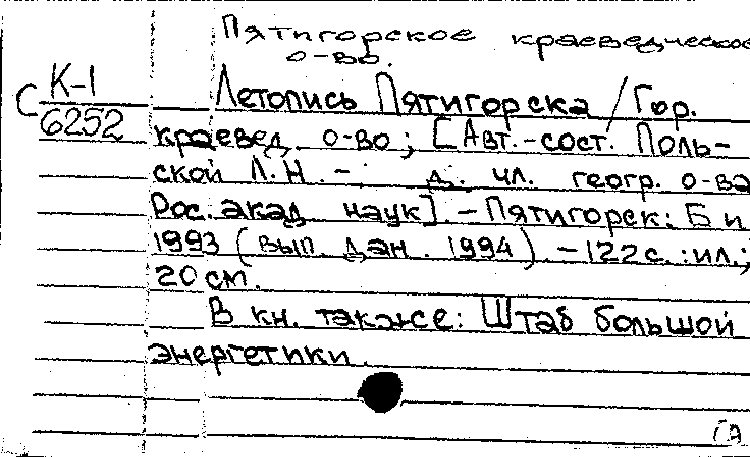 Пятигорское краеведческое
о-во.
С К-1
6252
Летопись Пятигорска / Гор.
краевед. о-во; [Авт.-сост. Поль-
ской Л.Н. - д. чл. геогр. о-ва
Рос. акад. наук]. - Пятигорск: Б и
1993 (вып. дан. 1994). - 122 с.: ил.;
20 см.
В кн. также: Штаб большой
энергетики.